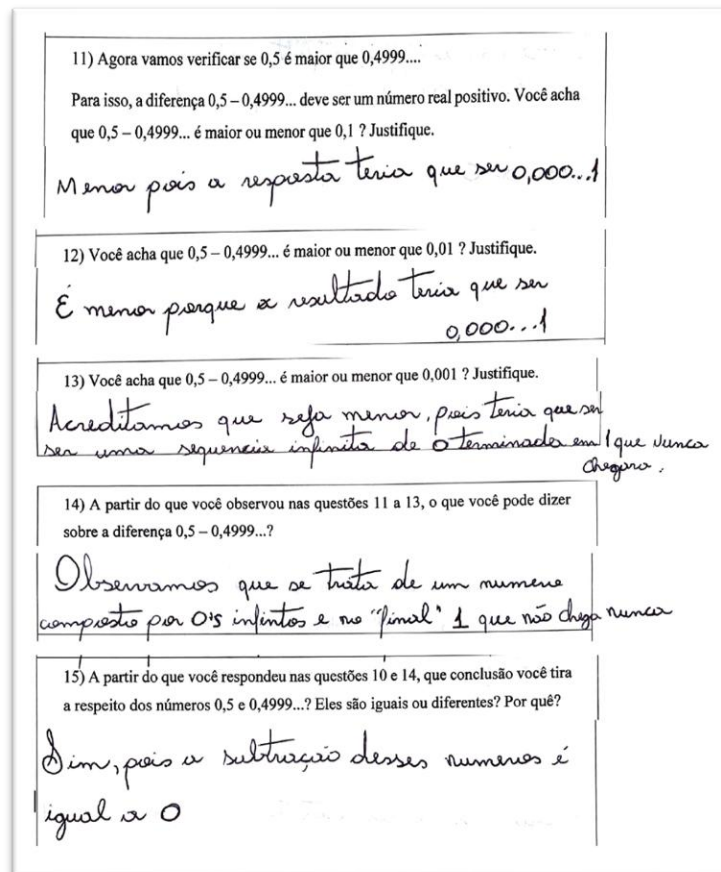 11) Agora vamos verificar se 0,5 é maior que 0,4999....
Para isso, a diferença 0,5 – 0,4999... deve ser um número real positivo. Você acha
que 0,5 – 0,4999... é maior ou menor que 0,1 ? Justifique.
Menor pois a resposta teria que ser 0,000...1
12) Você acha que 0,5 – 0,4999... é maior ou menor que 0,01 ? Justifique.
É menor porque o resultado teria que ser
0,000...1
13) Você acha que 0,5 – 0,4999... é maior ou menor que 0,001 ? Justifique.
Acreditamos que seja menor, pois teria que ser
ser uma sequencia infinita de 0 terminada em 1 que nunca
chegara.
14) A partir do que você observou nas questões 11 a 13, o que você pode dizer
sobre a diferença 0,5 – 0,4999...?
Observamos que se trata de um numero
composto por 0's infintos e no "final" 1 que não chega nunca
15) A partir do que você respondeu nas questões 10 e 14, que conclusão você tira
a respeito dos números 0,5 e 0,4999...? Eles são iguais ou diferentes? Por quê?
Sim, pois a subtração desses numeros é
igual a 0